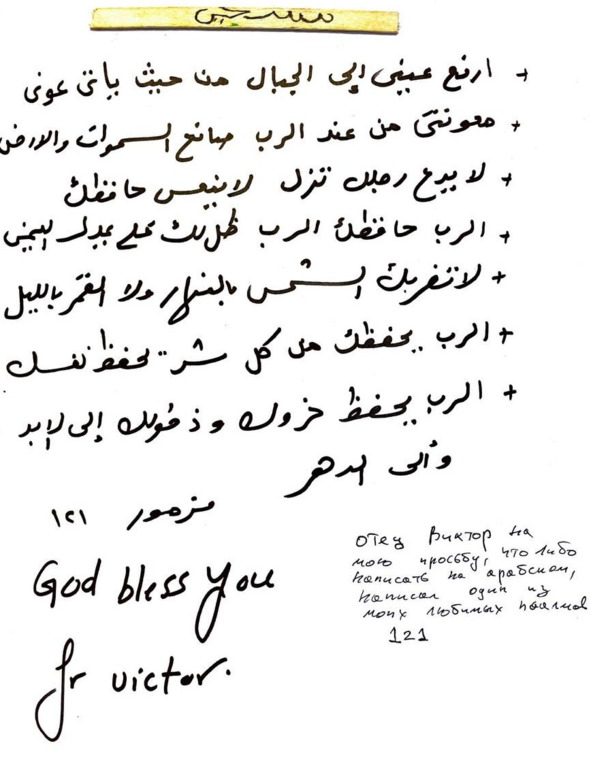 + ارفع عيني إلى الجبال من حيث يأتي عوني
+ معونتي من عند الرب صانع السموات والارض
+ لا يدع رجلك تزل لا ينعس حافظك
+ الرب حافظك الرب ظل لك على يدك اليمنى
+ لا تضربك الشمس بالنهار ولا القمر بالليل
+ الرب يحفظك من كل شر يحفظ نفسك
+ الرب يحفظ خروك و دخولك إلى لابد
وألى الدهر
مزمور ١٢١
God bless you
fr victor.
отец Виктор на
мою просьбу, что либо
написать на арабском,
написал один из
моих любимых псалмов
121